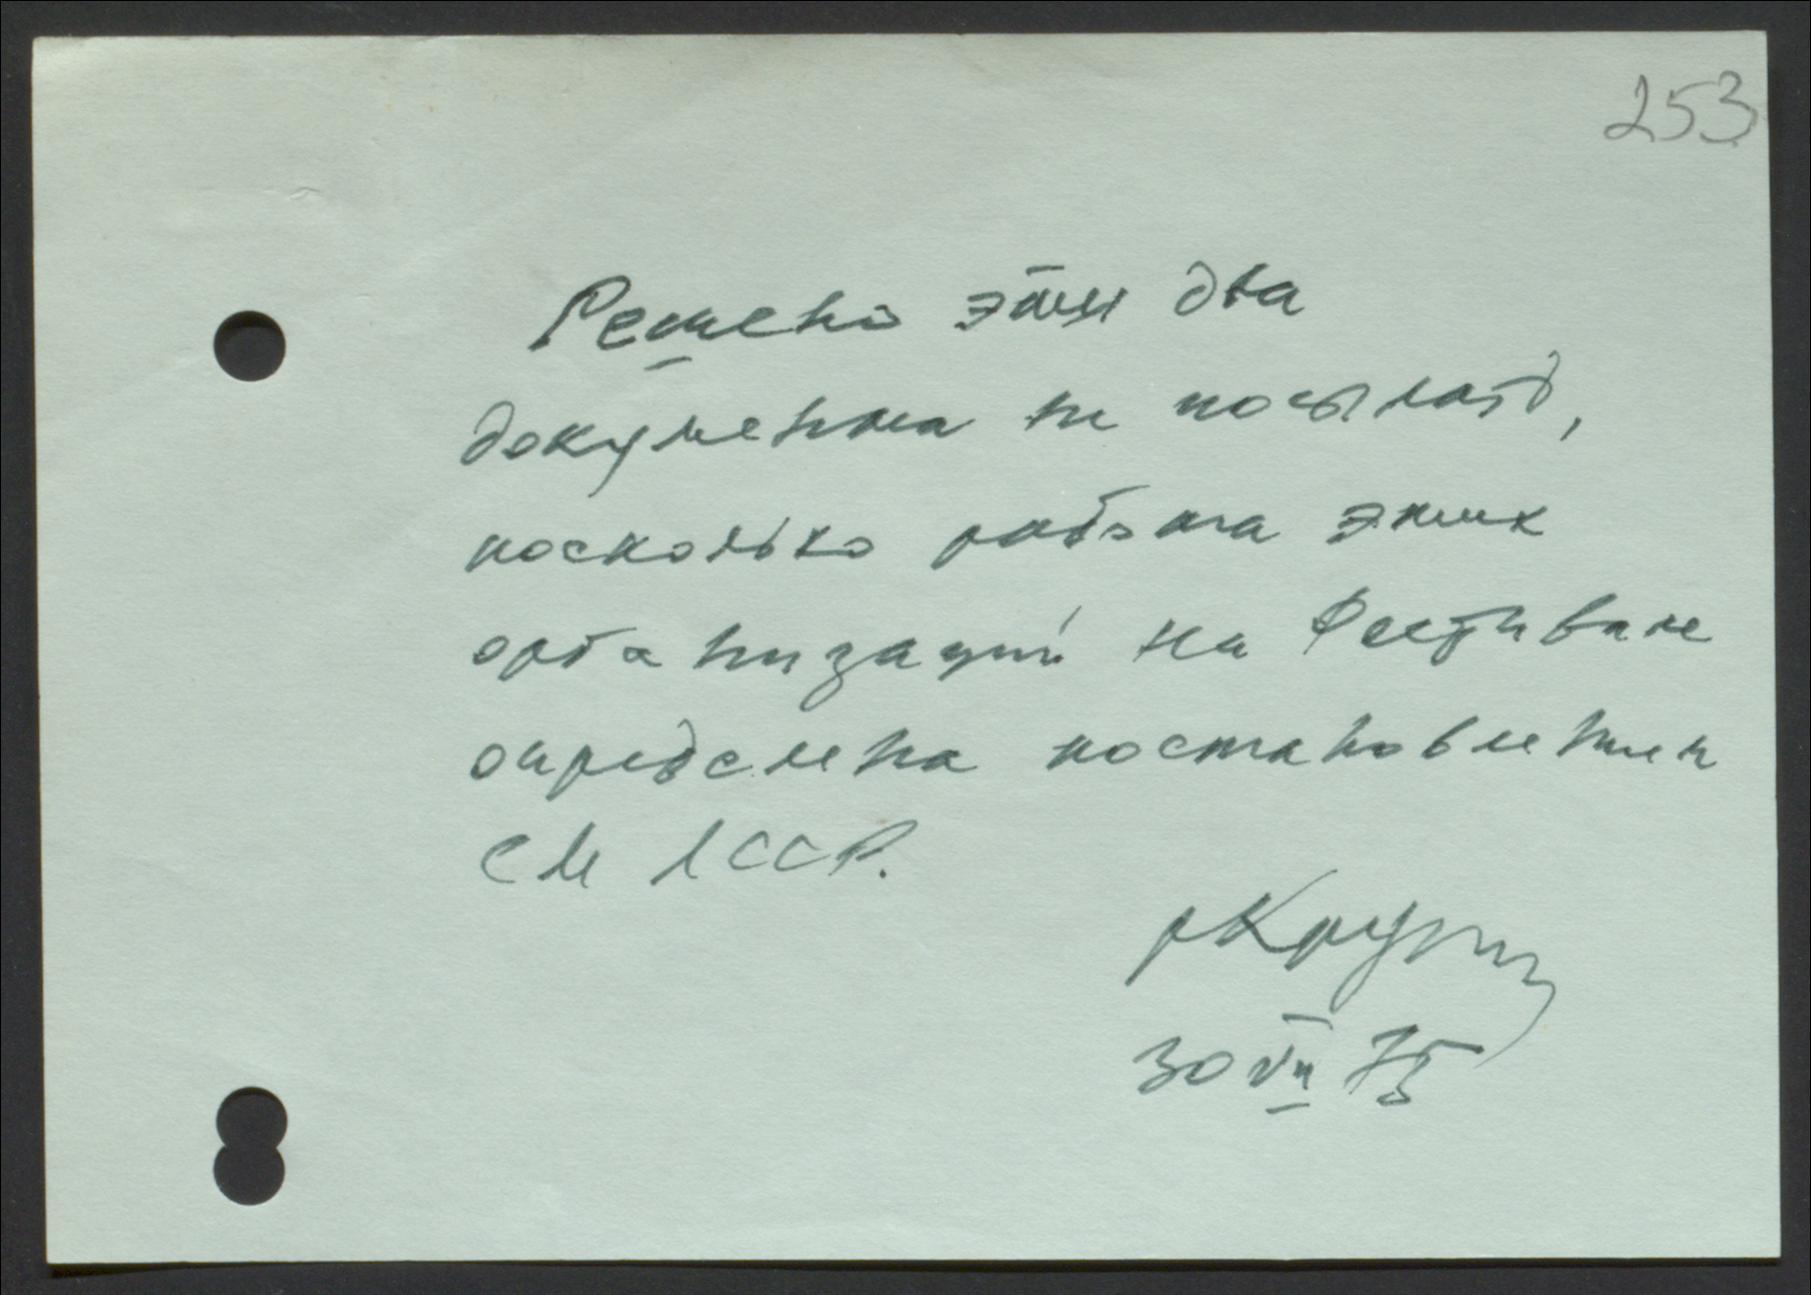 253
Решено эти два
документа не посылать,
поскольку работа этих
организаций на Фестивале
определена постановлением
СМ ЛССР.
30 VII 75